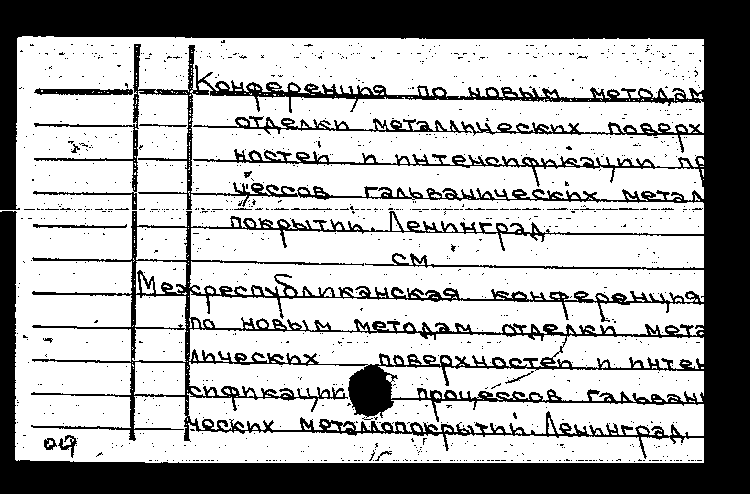 Конференция по новым методам
отделки металлических поверх
ностей и интенсификации пр
цессов гальванических метал
покрытий. Ленинград.
см.
Межреспубликанская конференция
по новым методам отделки мета
лических поверхностей и интен
сификации процессов гальвани
ческих металлопокрытий. Ленинград.